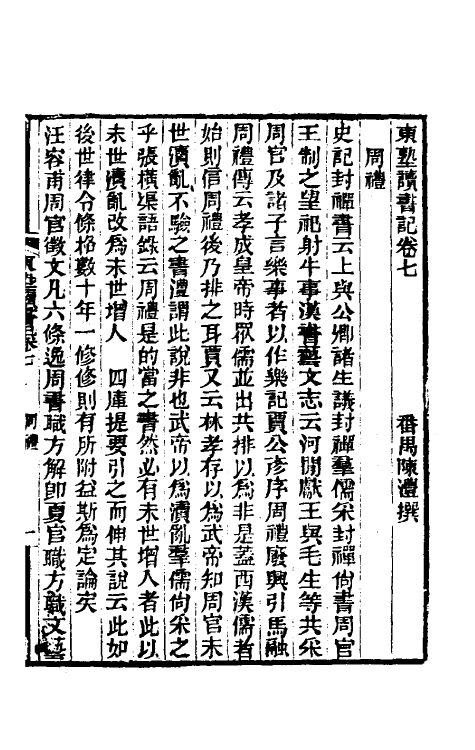 東塾讀書記卷七
番禺陳澧撰
周禮
史記封禪書云上與公卿諸生議封禪羣儒采封禪尙書周官
王制之望祀射牛事漢書藝文志云河閒獻王與毛生等共采
周官及諸子言樂事者以作樂記賈公彥序周禮廢興引馬融
周禮傳云孝成皇帝時眾儒並出共排以爲非是蓋西漢儒者
始則信周禮後乃排之耳賈又云林孝存以爲武帝知周官末
世瀆亂不驗之書澧謂此說非也武帝以爲瀆亂羣儒尙采之
乎張橫渠語錄云周禮是的當之書然必有末世增人者此以
末世瀆亂改爲末世增人　四庫提要引之而伸其說云此如
後世律令條格數十年一修修則有所附益斯爲定論矣
汪容甫周官徵文凡六條逸周書職方解卽夏官職方職文藝
周禮
一